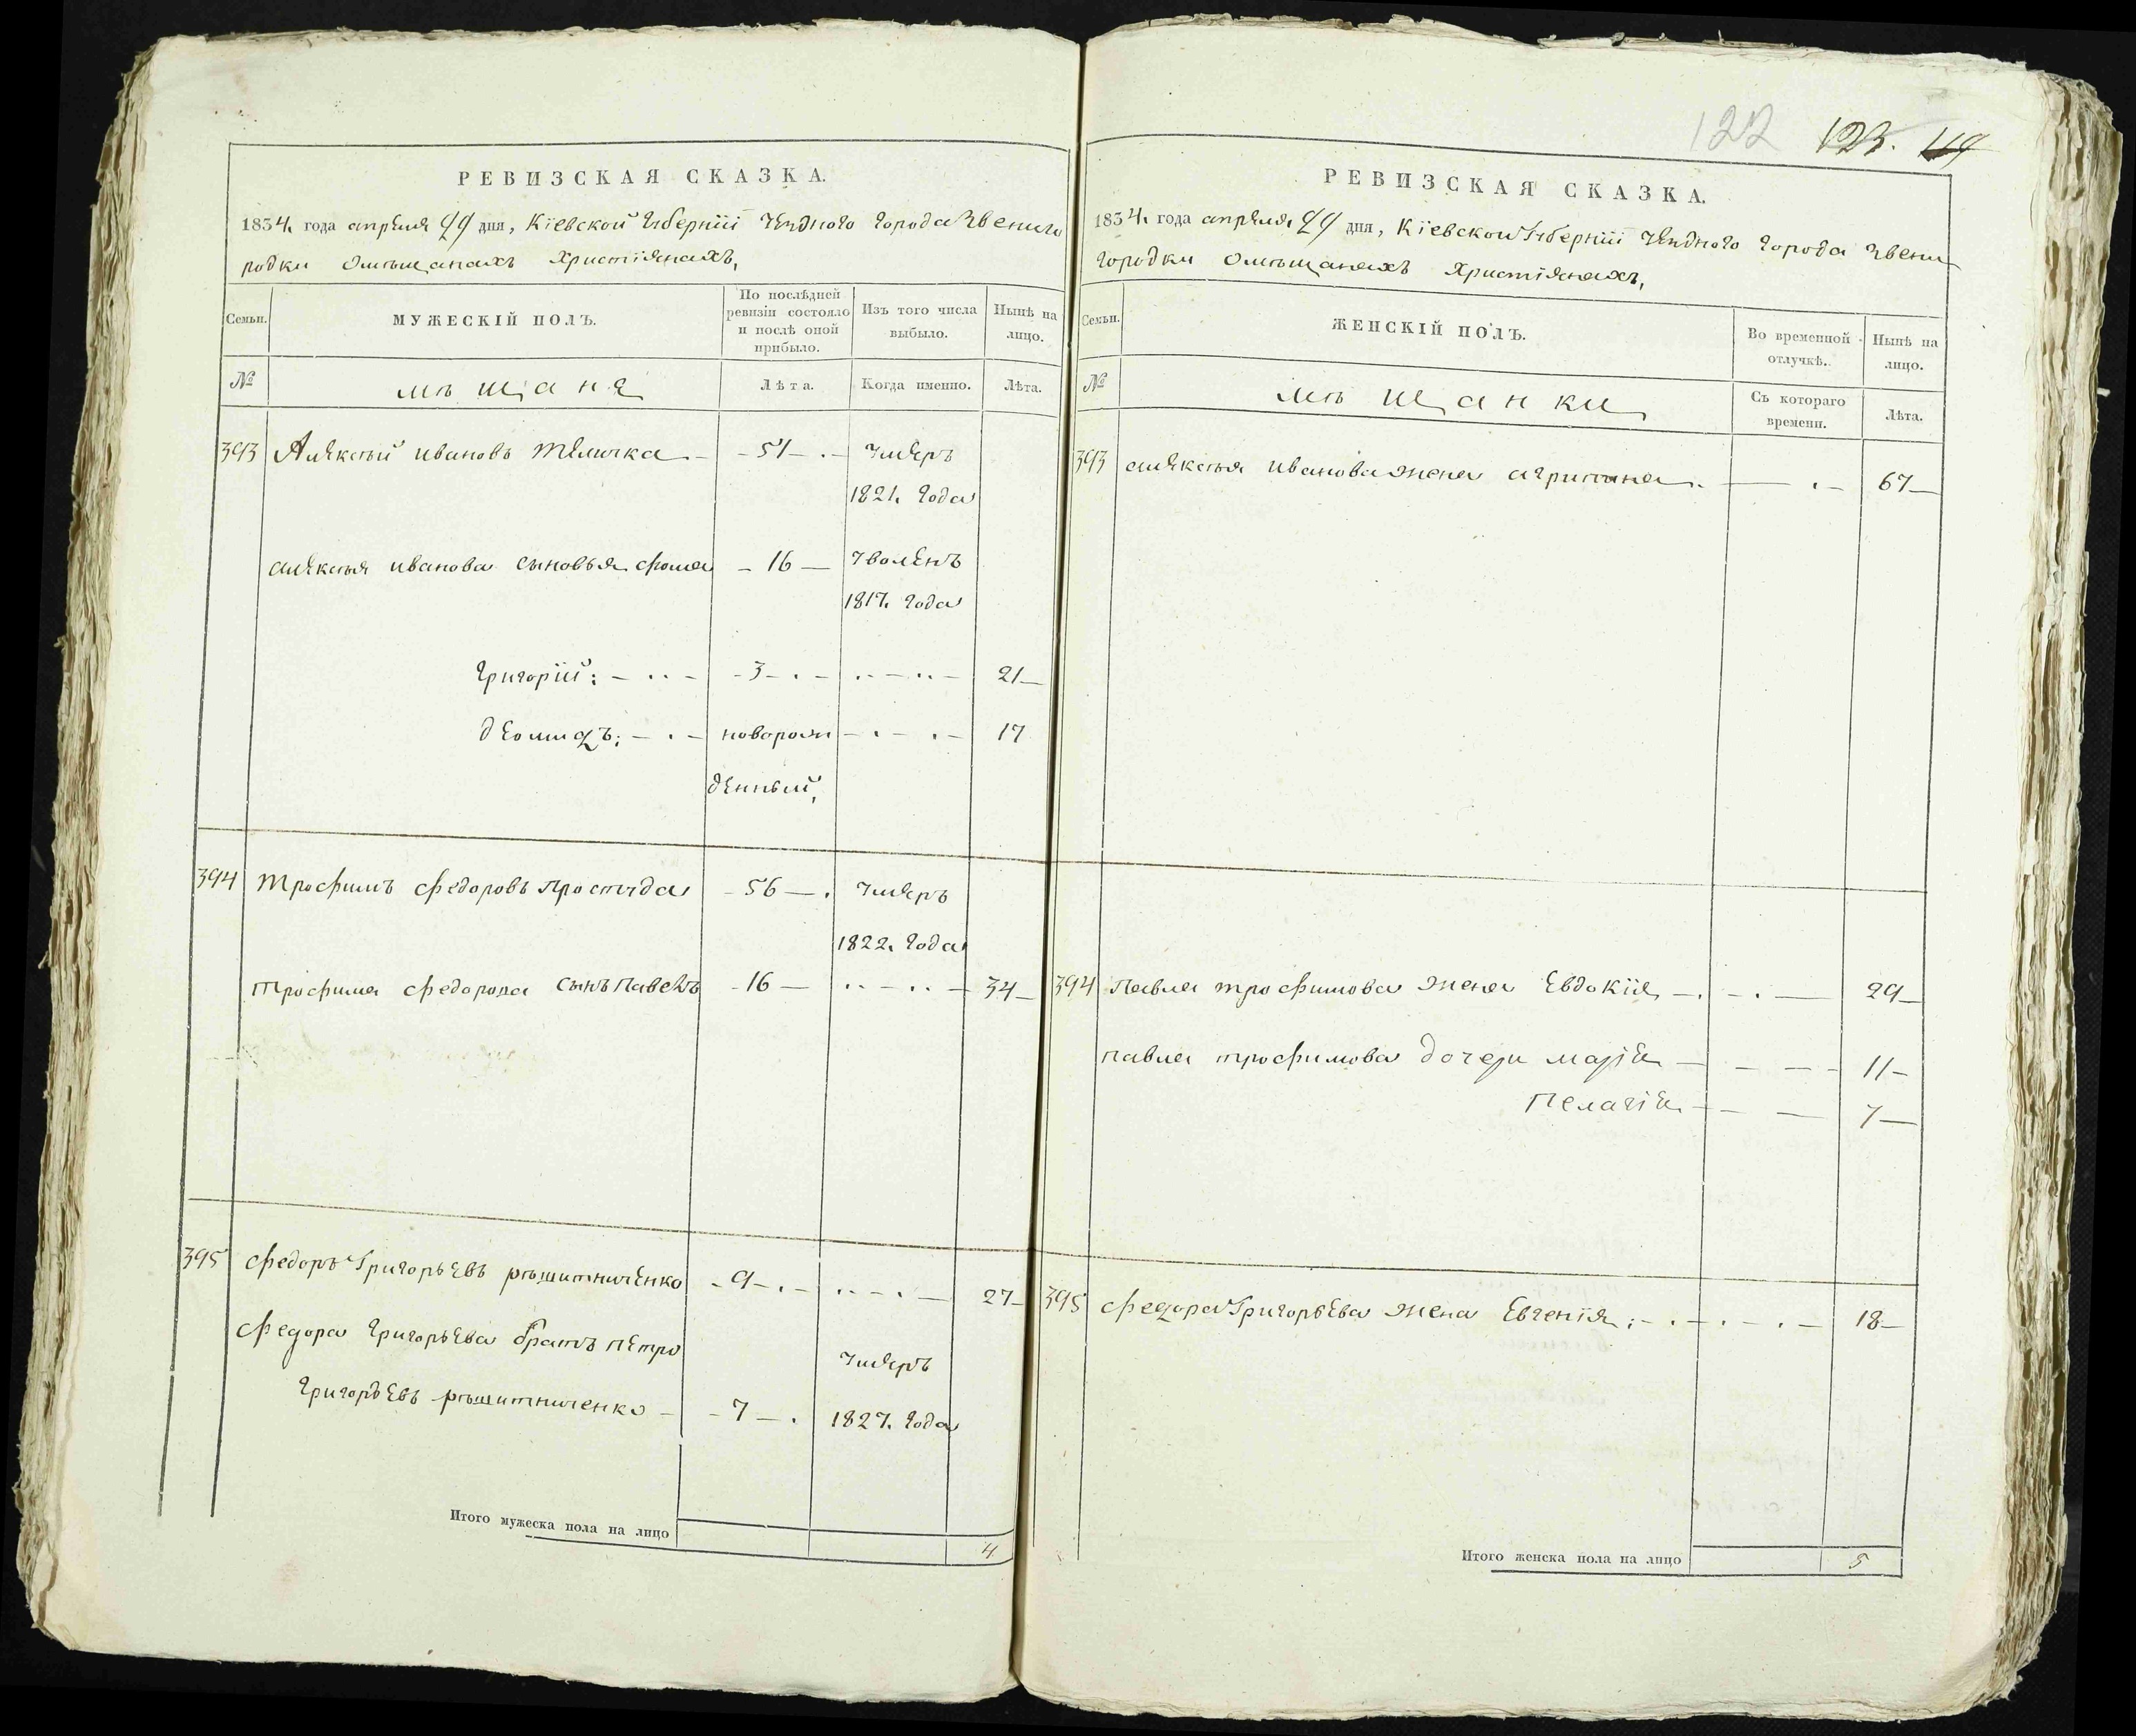 122 123. 119
РЕВИЗСКАЯ СКАЗКА.
1834. года апреля 29 дня, Кіевской губерніи уездного города Звениго
родки омѣщанахъ христіянахъ,
Семьи.
МУЖЕСКІЙ ПОЛЪ.
По послѣдней ревизіи состояло и послѣ оной прибыло.
Изъ того числа выбыло.
Нынѣ на лицо.
№ мѣщаня Лѣта. Когда именно. Лѣта.
393 Алексѣй ивановъ Теличка - 51 - умеръ
1821. года
алексѣя иванова сыновья фома - 16 - уволенъ
1817. года
григорій: - 3 - 21
деомидъ: новорож 17
денный,
394 трофимъ федоровъ простуда - 56 - умеръ
1822. года
трофима федорова сынъ павелъ - 16 - 34
395 федоръ григорьевъ рѣшитниченко - 9 - 27
федора григорьева братъ петро
умеръ
григорьевъ рѣшитниченко - 7 - 1827. года
Итого мужеска пола на лицо 4
РЕВИЗСКАЯ СКАЗКА.
1834. года апреля 29 дня, Кіевской губерніи уездного города Звени
городки омѣщанахъ христіянахъ,
Семьи.
ЖЕНСКІЙ ПОЛЪ.
Во временной отлучкѣ.
Нынѣ на лицо.
№ мѣщанки Съ котораго времени. Лѣта.
393 алексѣя иванова жена агрипина - 67
394 павла трофимова жена Евдокія - 29
павла трофимова дочери марія - 11
пелагія - 7
395 федора григорьева жена Евгенія: - 18
Итого женска пола на лицо 5